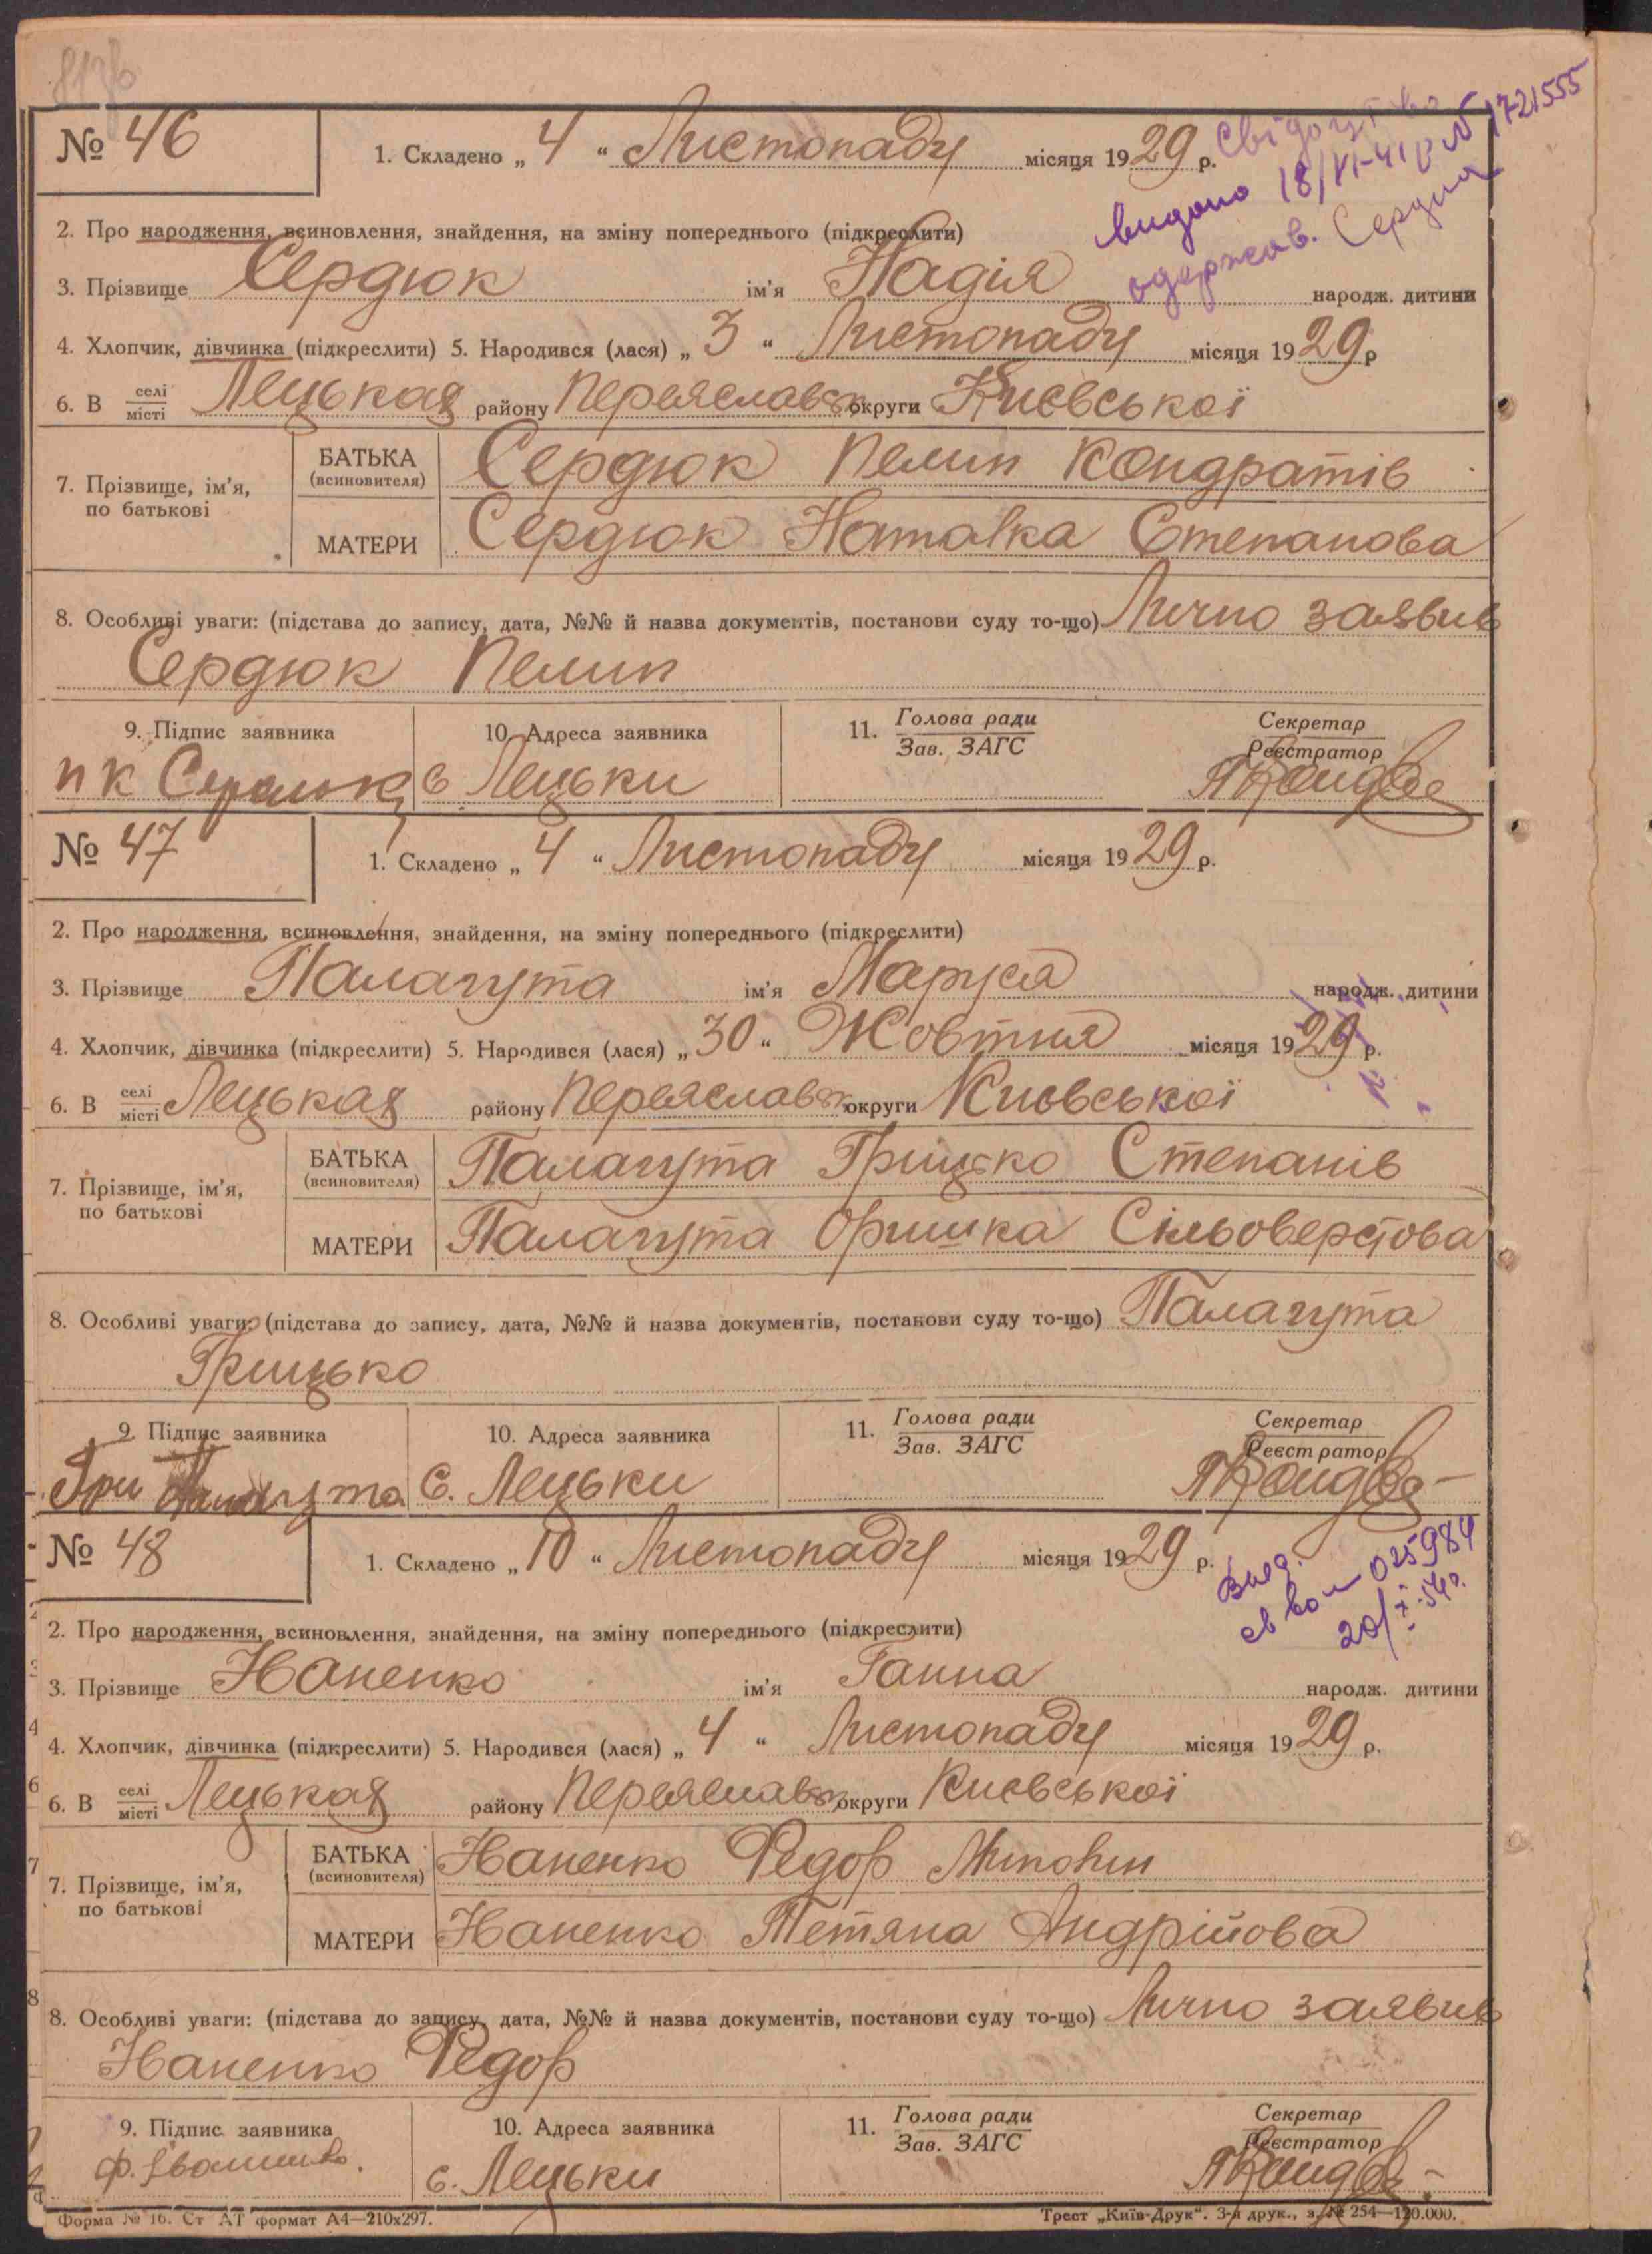 № 46
1. Складено „ 4 “ Листопаду місяця 1929 р.
Свідоцтво
видано 18/VI-41р № 1721555
одержав. Сердюк
2. Про народження, всиновлення, знайдення, на зміну попереднього (підкреслити)
3. Прізвище Сердюк ім'я Надія народж. дитини
4. Хлопчик, дівчинка (підкреслити) 5. Народився (лася) „ 3 “ Листопаду місяця 1929 р
6. В селі/місті Лецьках району Переяславськ округи Київської
7. Прізвище, ім'я, по батькові
БАТЬКА (всиновителя) Сердюк Пелип Кондратів
МАТЕРИ Сердюк Наталка Степанова
8. Особливі уваги: (підстава до запису, дата, №№ й назва документів, постанови суду то-що) Лично заявив
Сердюк Пелип
9. Підпис заявника 10. Адреса заявника 11. Голова ради/Зав. ЗАГС Секретар/Реєстратор
П К Сердюк с Лецьки
№ 47
1. Складено „ 4 “ Листопаду місяця 1929 р.
2. Про народження, всиновлення, знайдення, на зміну попереднього (підкреслити)
3. Прізвище Палагута ім'я Маруся народж. дитини
4. Хлопчик, дівчинка (підкреслити) 5. Народився (лася) „ 30 “ Жовтня місяця 1929 р.
6. В селі/місті Лецьках району Переяславськ округи Київської
7. Прізвище, ім'я, по батькові
БАТЬКА (всиновителя) Палагута Грицько Степанів
МАТЕРИ Палагута Оришка Сільоверстова
8. Особливі уваги: (підстава до запису, дата, №№ й назва документів, постанови суду то-що) Палагута
Грицько
9. Підпис заявника 10. Адреса заявника 11. Голова ради/Зав. ЗАГС Секретар/Реєстратор
Гри Палагута С. Лецьки
№ 48
1. Складено „ 10 “ Листопаду місяця 1929 р.
025984
20/X-54р.
2. Про народження, всиновлення, знайдення, на зміну попереднього (підкреслити)
3. Прізвище Іваненко ім'я Ганна народж. дитини
4. Хлопчик, дівчинка (підкреслити) 5. Народився (лася) „ 4 “ Листопаду місяця 1929 р.
6. В селі/місті Лецьках району Переяславськ округи Київської
7. Прізвище, ім'я, по батькові
БАТЬКА (всиновителя) Іваненко Федор
МАТЕРИ Іваненко Тетяна Андрійова
8. Особливі уваги: (підстава до запису, дата, №№ й назва документів, постанови суду то-що) Лично заявив
Іваненко Федор
9. Підпис заявника 10. Адреса заявника 11. Голова ради/Зав. ЗАГС Секретар/Реєстратор
с. Лецьки
Форма № 16. Ст АТ формат А4—210х297.
Трест „Київ-Друк“. 3-я друк., з. № 254—120.000.